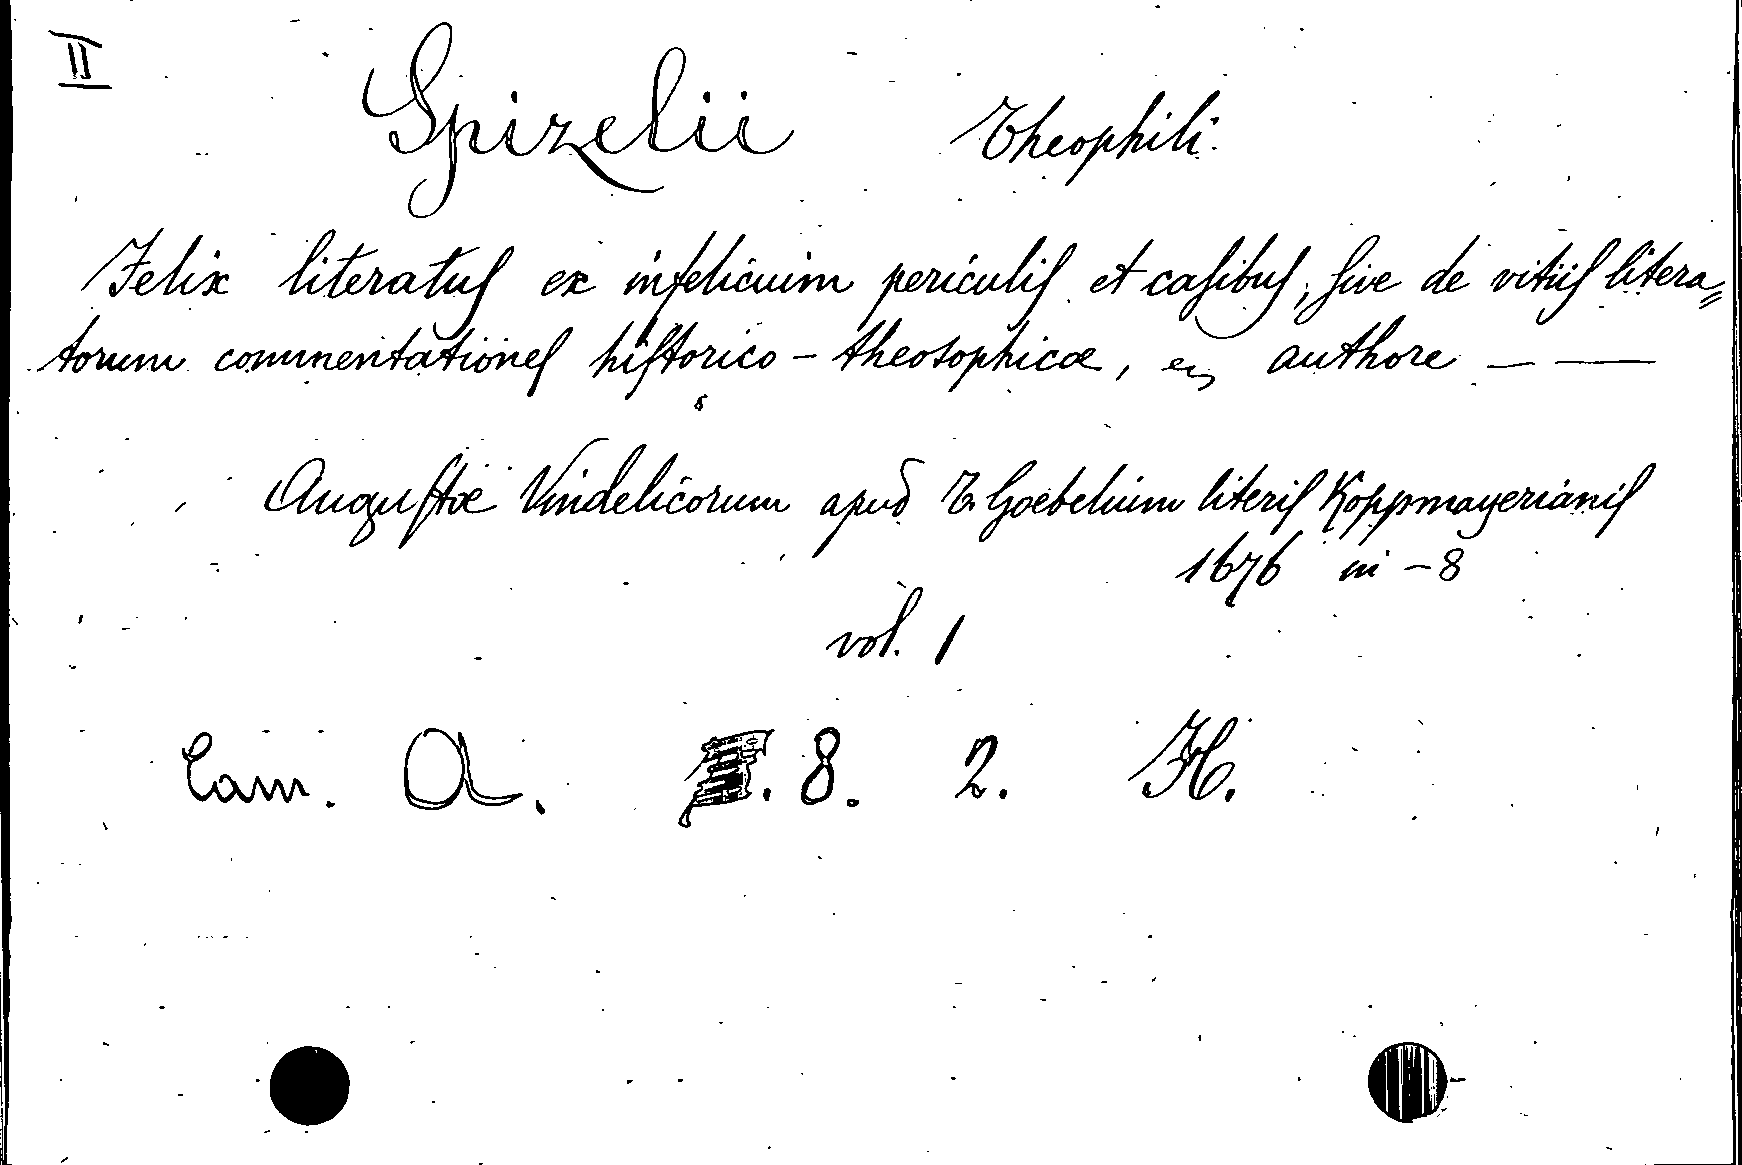 II
Spizelii Theophili.
Felix literatuſ ex infelicium periculiſ et caſibuſ, ſive de vitiiſ litera=
torum commentationeſ hiſtorico - theosophicæ, authore — —
Auguſtæ Vindelicorum apud T. Goebelium literiſ Koppmayerianiſ
1676 in - 8
vol. 1
Cam. A. 8. 2. H.